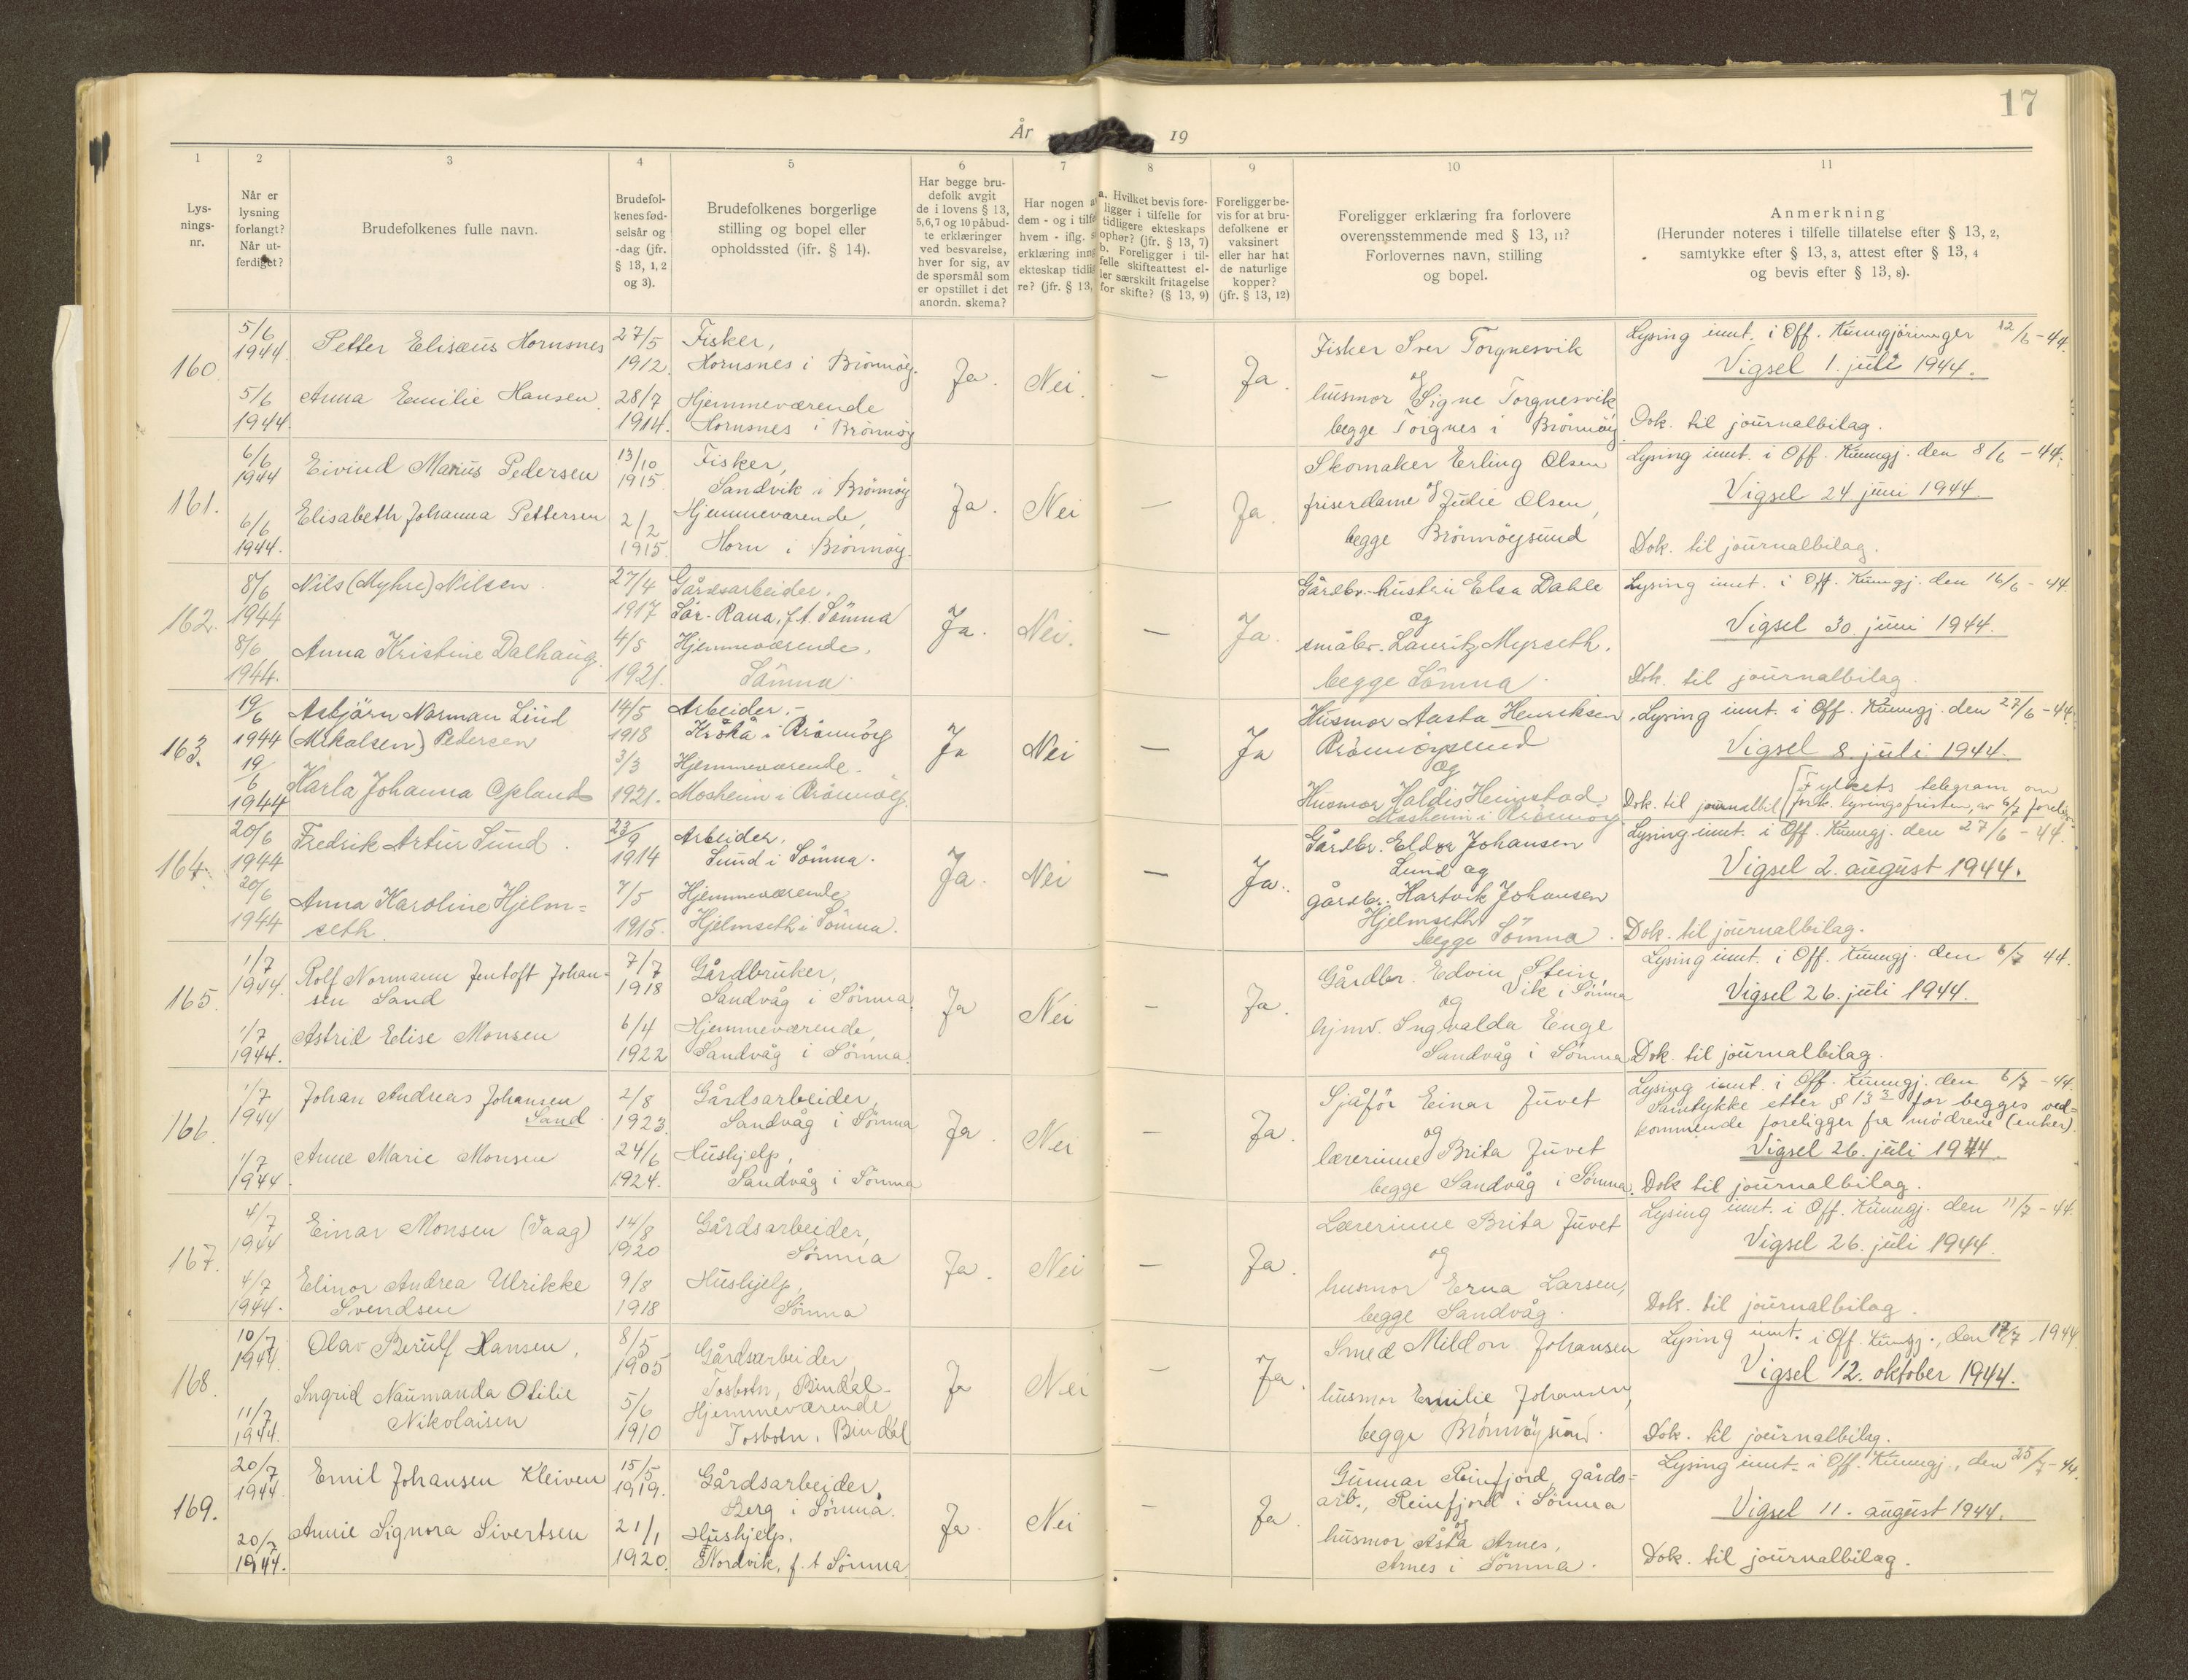 17
År 19
1 2 3 4 5 6 7 8 9 10 11
Lys-
nings-
nr.
Når er
lysning
forlangt?
Når ut-
ferdiget?
Brudefolkenes fulle navn.
Brudefol-
kenes fød-
selsår og
-dag (jfr.
§ 13, 1, 2
og 3).
Brudefolkenes borgerlige
stilling og bopel eller
opholdssted (ifr. § 14).
Har begge bru-
defolk avgit
de i lovens § 13,
5,6,7 og 10 påbud-
te erklæringer
ved besvarelse,
hver for sig, av
de spørsmål som
er opstillet i det
anordn. skema?
Har nogen a
dem - og i tilfe
hvem - iflg.
erklæring inng
ekteskap tidlig
re? (jfr. § 13,
a. Hvilket bevis fore-
ligger i tilfelle for
tidligere ekteskaps
ophør? (jfr. § 13, 7)
b. Foreligger i til-
felle skifteattest el-
ler særskilt fritagelse
for skifte? (§ 13, 9)
Foreligger be-
vis for at bru-
defolkene er
vaksinert
eller har hat
de naturlige
kopper?
(jfr. § 13, 12)
Foreligger erklæring fra forlovere
overensstemmende med § 13, 11?
Forlovernes navn, stilling
og bopel.
Anmerkning
(Herunder noteres i tilfelle tillatelse efter § 13, 2,
samtykke efter § 13, 3, attest efter § 13, 4
og bevis efter § 13, 8).
160
5/6
1944.
Petter Elisæus Hornsnes
27/5
1912.
Fisker,
Hornsnes i Brönnöy.
5/6
1944
Anna Emilie Hansen
28/7
1914.
Hjemmeværende
Hornsnes i Brönnöy
Ja.
Nei.
—
Ja.
Fisker Sver Torgnesvik
og
husmor Signe Torgnesvik
begge Torgnes i Brönnöy.
Lysing innt. i Off. Kunngjöringer 12/6-44.
Vigsel 1. juli 1944.
Dok. til journalbilag.
161.
6/6
1944
Eivind Marius Pedersen
13/10
1915.
Fisker,
Sandvik i Brönnöy
6/6
1944.
Elisabeth Johanna Pettersen
2/2
1915.
Hjemmeværende,
Horn i Brönnöy.
Ja.
Nei
—
Ja.
Skomaker Erling Olsen
og
friserdame Julie Olsen,
begge Brönnöysund
Lysing innt. i Off. Kunngj. den 8/6 - 44.
Vigsel 24 juni 1944.
Dok. til journalbilag.
162.
8/6
1944
Nils (Myhre) Nilsen.
27/4
1917
Gårdsarbeider.
Sör-Rana, f.t. Sömna
8/6
1944.
Anna Kristine Dalhaug.
4/5
1921.
Hjemmeværende,
Sömna
Ja.
Nei.
—
Ja.
Gårdbr.-hustru Elsa Dahle
og
småbr. Lauritz Myrseth.
begge Sömna.
Lysing innt. i Off. Kunngj. den 16/6 - 44.
Vigsel 30. juni 1944.
Dok. til journalbilag
163.
19/6
1944
Asbjörn Norman Lind
(Mikalsen) Pedersen
14/5
1918
Arbeider.-
Kråkå i Brönnöy
19/6
1944
Karla Johanna Opland
3/3
1921.
Hjemmeværende.
Mosheim i Brönnöy.
Ja
Nei
—
Ja
Husmor Aasta Henriksen
Brönnöysund
og
Husmor Haldis Heimstad.
Mosheim i Brönnöy
Lysing innt. i Off. Kunngj. den 27/6 - 44.
Vigsel 8. juli 1944.
Dok. til journalbil
Fylkets telegram om
fork. lysingsfristen, av 6/7 forelig.
164.
20/6
1944
Fredrik Artur Sund.
23/9
1914
Arbeider,
Sund i Sömna.
20/6
1944
Anna Karoline Hjelm=
seth.
7/5
1915.
Hjemmeværende
Hjelmseth i Sömna.
Ja.
Nei
—
Ja.
Gårdbr. Eldor Johansen
Lund og
gårdbr. Hartvik Johansen
Hjelmseth
begge Sömna.
Lysing innt. i Off. Kunngj. den 27/6 - 44.
Vigsel 2. august 1944.
Dok. til journalbilag.
165.
1/7
1944.
Rolf Normann Jentoft Johan=
sen Sand
7/7
1918
Gårdbruker,
Sandvåg i Sömna
1/7
1944.
Astrid Elise Monsen
6/4
1922
Hjemmeværende,
Sandvåg i Sömna.
Ja
Nei
—
Ja.
Gårdbr. Edvin Stein,
Vik i Sömna
og
hjmv. Ingvalda Enge
Sandvåg i Sömna
Lysing innt. i Off. Kunngj. den 6/7 44.
Vigsel 26. juli 1944.
Dok. til journalbilag.
166.
1/7
1944
Johan Andreas Johansen
Sand.
2/8
1923.
Gårdsarbeider,
Sandvåg i Sömna
1/7
1944.
Anne Marie Monsen
24/6
1924.
Hushjelp,
Sandvåg i Sömna
Ja.
Nei
—
Ja.
Sjåför Einar Juvet
og
lærerinne Brita Juvet
begge Sandvåg i Sömna.
Lysing innt. i Off. Kunngj. den 6/7 - 44.
Samtykke etter § 13 3 for begges ved=
kommende foreligger fra mödrene (enker).
Vigsel 26. juli 1944.
Dok til journalbilag.
167.
4/7
1944
Einar Monsen (Vaag)
14/8
1920
Gårdsarbeider,
Sömna
4/7
1944.
Elinor Andrea Ulrikke
Svendsen
9/8
1918
Hushjelp,
Sömna
Ja.
Nei
—
Ja.
Lærerinne Brita Juvet
og
husmor Erna Larsen,
begge Sandvåg.
Lysing innt. i Off. Kunngj. den 11/7 - 44.
Vigsel 26. juli 1944.
Dok. til journalbilag.
168.
10/7
1944.
Olav Berulf Hansen,
8/5
1905
Gårdsarbeider
Tosbotn, Bindal.
11/7
1944.
Ingrid Naumanda Otilie
Nikolaisen
5/6
1910
Hjemmeværende
Tosbotn, Bindal
Ja
Nei
—
Ja.
Smed Mildon Johansen
husmor Emilie Johansen,
begge Brönnöysund.
Lysing innt. i Off. Kunngj., den 17/7 1944
Vigsel 12. oktober 1944.
Dok. til journalbilag.
169.
20/7
1944
Emil Johansen Kleiven
15/5
1919.
Gårdsarbeider,
Berg i Sömna.
20/7
1944.
Annie Signora Sivertsen
21/1
1920.
Hushjelp,
Nordvik, f.t Sömna.
Ja.
Nei
—
Ja.
Gunnar Reinfjord, gårds=
arb., Reinfjord i Sömna
og
husmor Åsta Arnes,
Arnes i Sömna.
Lysing innt. i Off. Kunngj., den 25/7 - 44.
Vigsel 11. august 1944.
Dok. til journalbilag.